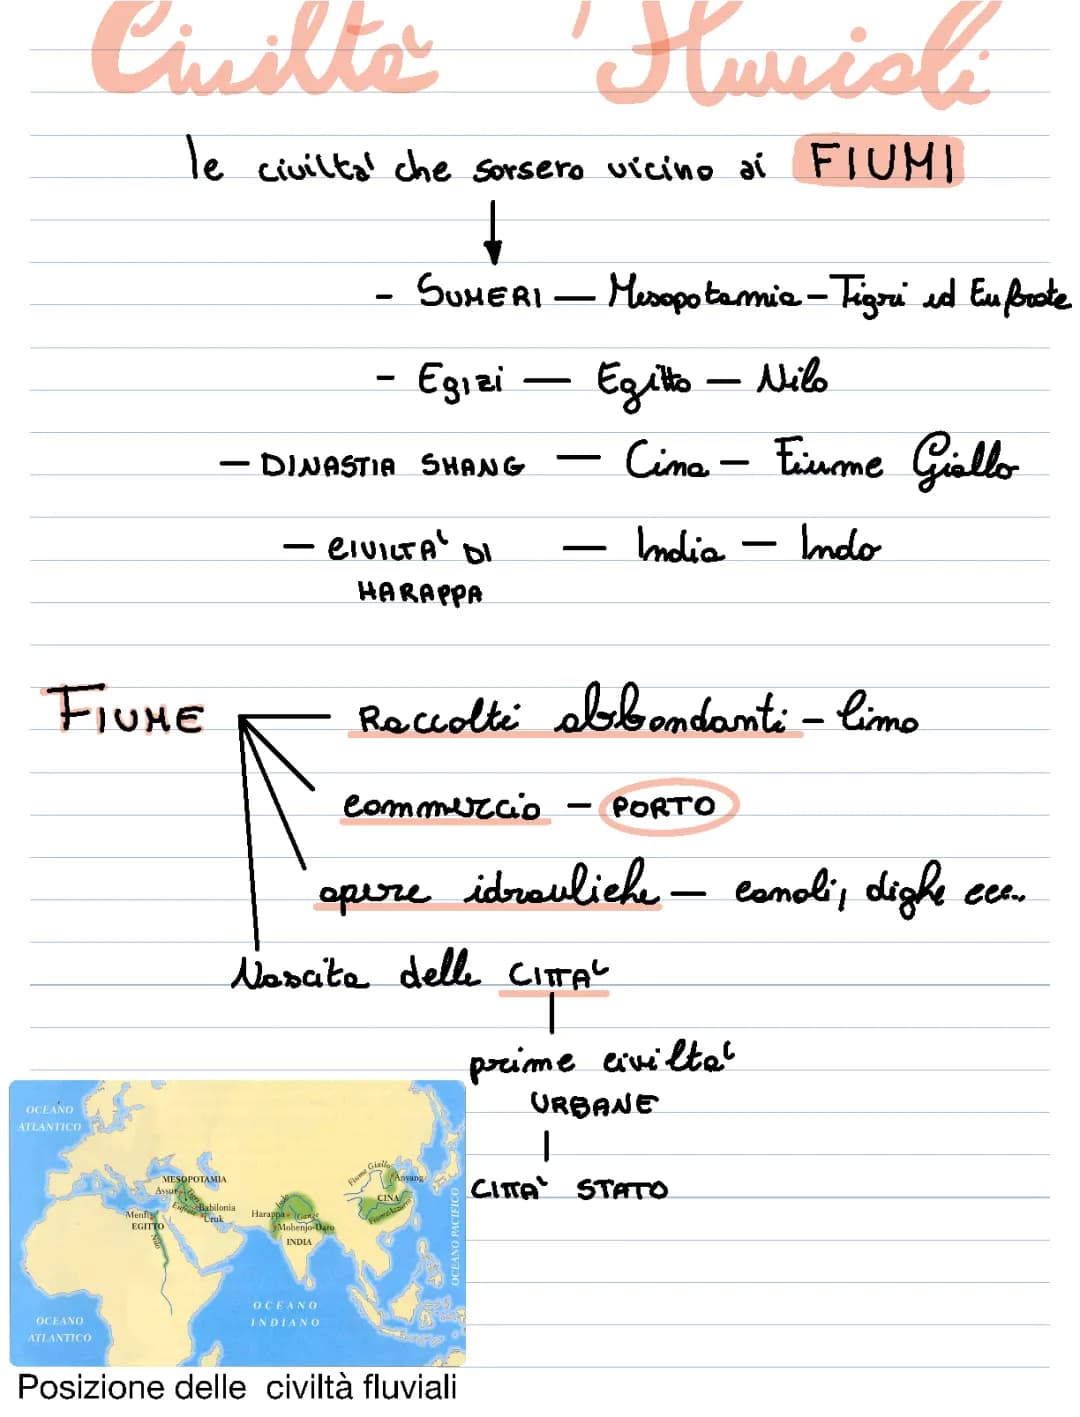 Civiltà Fluviali
le civiltà che sorsero vicino ai FIUMI
- SUMERI — Mesopotamia - Tigri ed Eufrate
- Egizi — Egitto — Nilo
- DINASTIA SHANG — Cina - Fiume Giallo
- CIVILTÀ DI — India - Indo
HARAPPA
FIUME
Raccolti abbondanti - limo
commercio - PORTO
opere idrauliche - canali, dighe ecc..
Nascita delle CITTÀ
prime civiltà
URBANE
CITTÀ STATO
OCEANO
ATLANTICO
MESOPOTAMIA
Assur
Tigri
Eufrate
Babilonia
Uruk
Menfi
EGITTO
Nilo
Indo
Harappa
Gange
Mohenjo-Daro
INDIA
Fiume Giallo
Anyang
CINA
Fiume Azzurro
OCEANO PACIFICO
OCEANO
INDIANO
OCEANO
ATLANTICO
Posizione delle civiltà fluviali